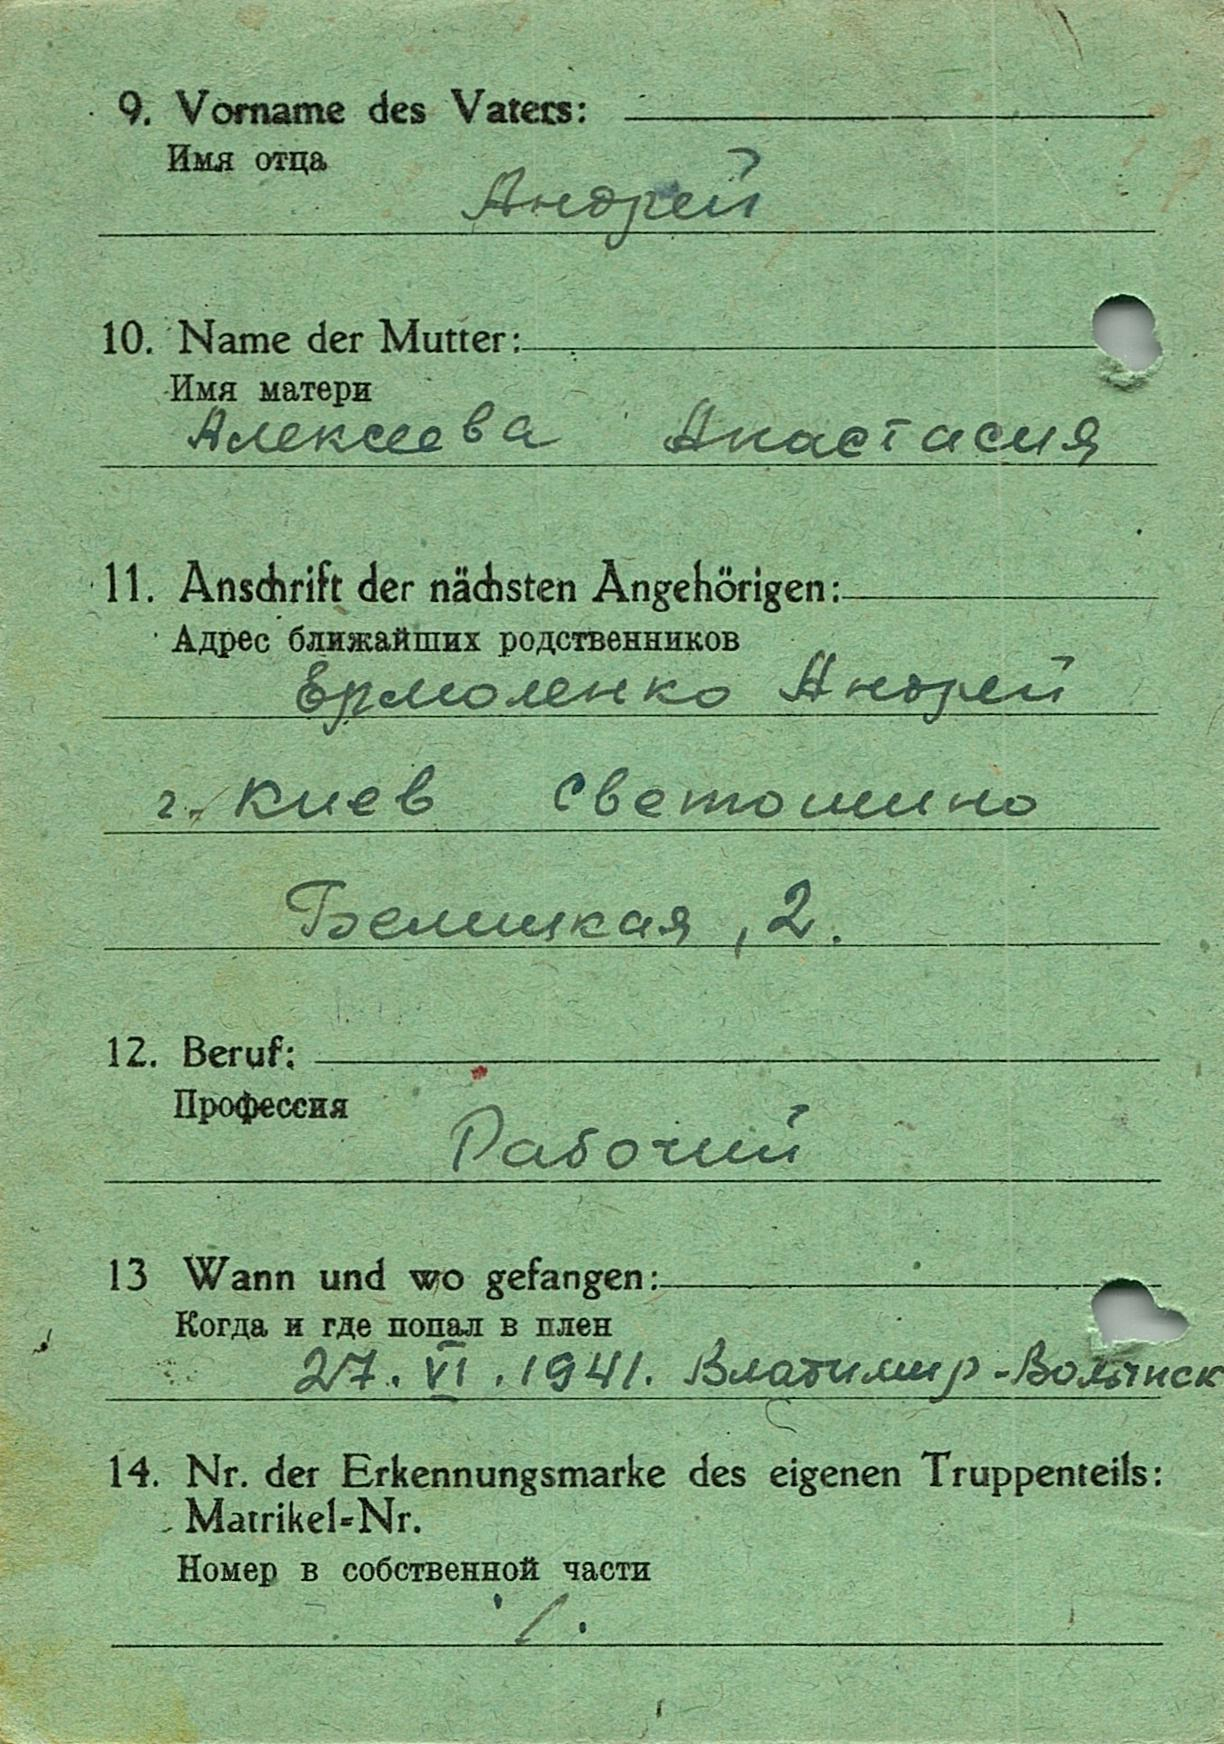 9. Vorname des Vaters:
Имя отца
Андрей
10. Name der Mutter:
Имя матери
Алексеева Анастасия
11. Anschrift der nächsten Angehörigen:
Адрес ближайших родственников
Ермоленко Андрей
г. Киев Светошино
Белицкая, 2.
12. Beruf:
Профессия
Рабочий
13 Wann und wo gefangen:
Когда и где попал в плен
27. VI. 1941. Владимир-Волынск
14. Nr. der Erkennungsmarke des eigenen Truppenteils:
Matrikel=Nr.
Номер в собственной части
./.